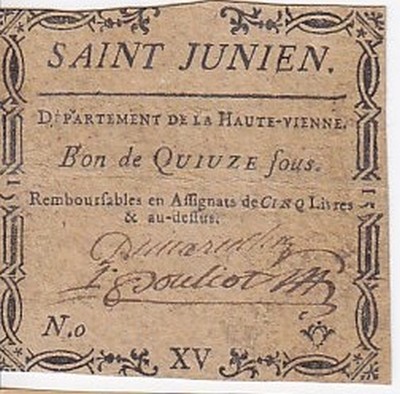 SAINT JUNIEN.
DÉPARTEMENT DE LA HAUTE-VIENNE.
Bon de QUIUZE ſous.
Rembourſables en Aſſignats de CINQ Livres
& au-deſſus.
N.o
XV